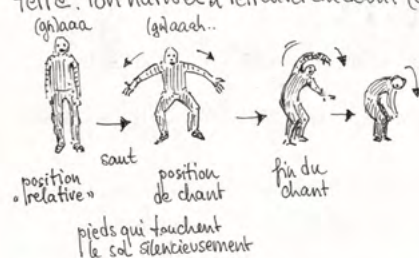 (gn)aaa
(gn)aaah..
saut
position
"relative"
position
de chant
fin du
chant
pieds qui touchent
le sol silencieusement